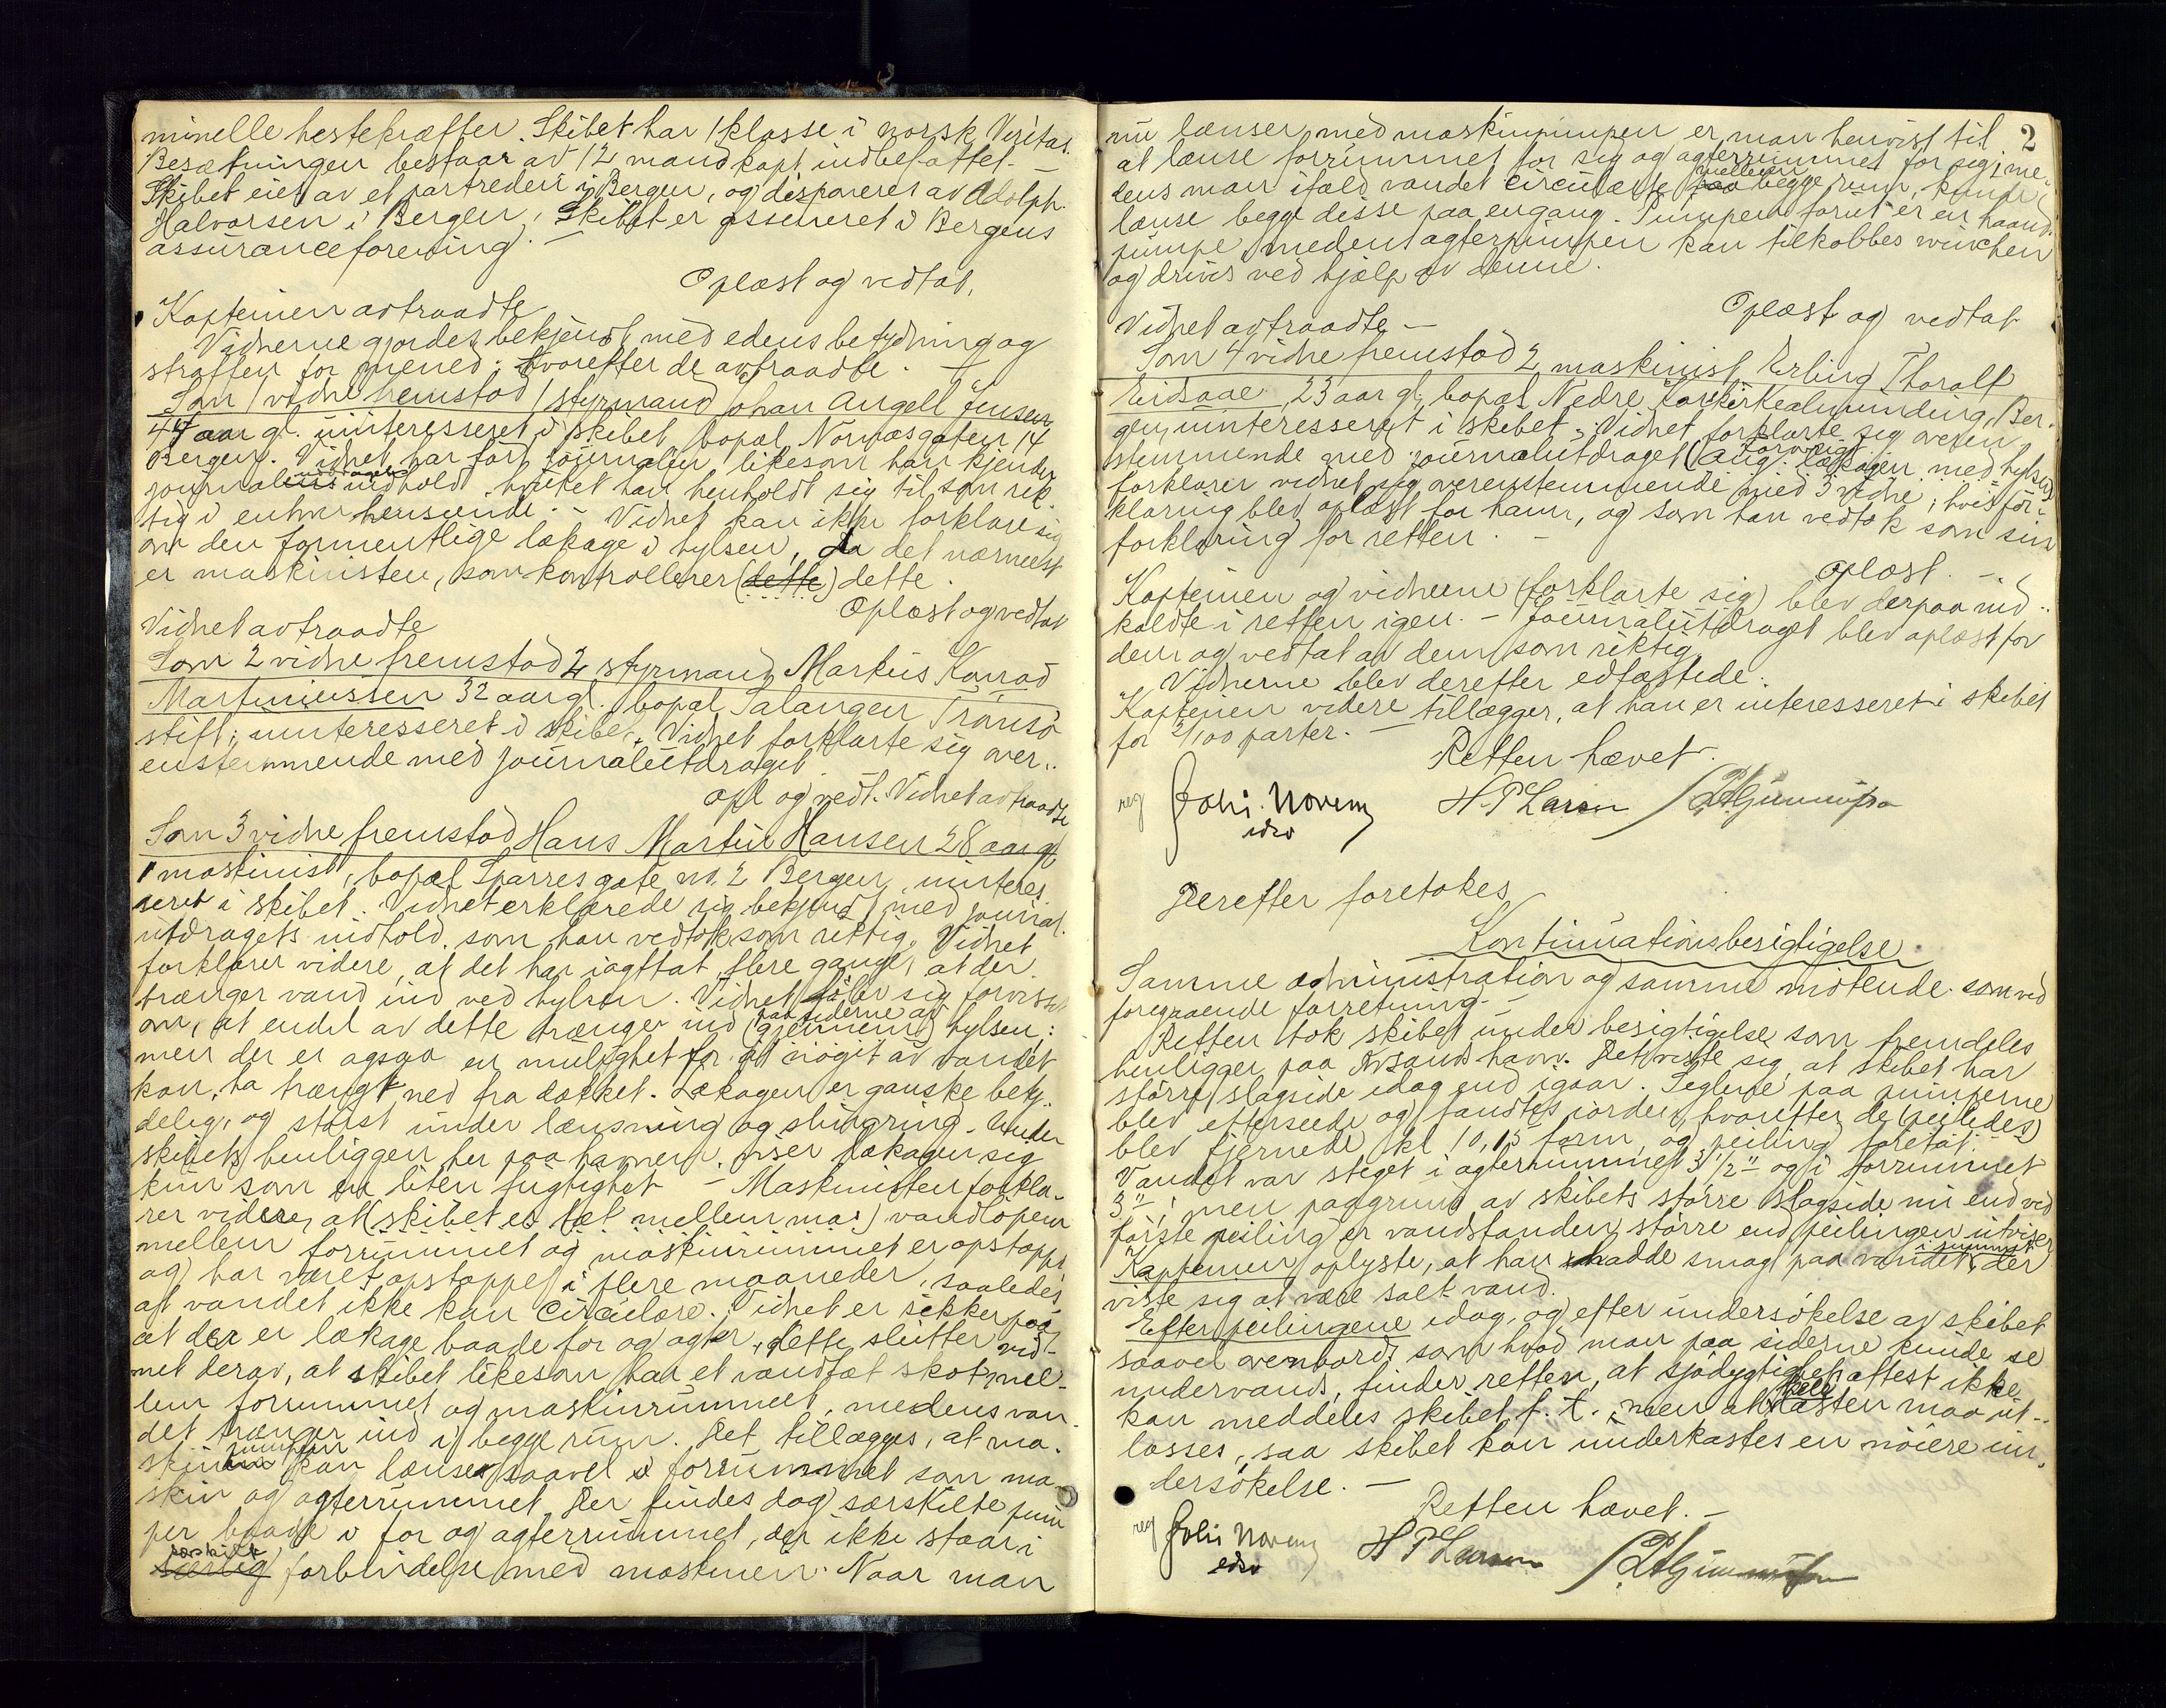 minelle hestekræfter. Skibet har 1 klasse i norsk Veritas.
Besætningen bestaar av 12 mand kapt. indbefattet. -
Skibet eies av et partrederi i Bergen, og disponeres av Adolph
Halvorsen i Bergen, Skibet er assureret i Bergens
assuranceforening. -
Oplæst og vedtat.
Kapteinen avtraadte
Vidnerne gjordes bekjendt med edens betydning og
straffen for mened; hvorefter de avtraadte. -
Som 1 vidne fremstod 1 styrmand Johan Angell Jensen
47 aar gl. uinteresseret i skibet, bopæl Normasgaten 14
Bergen. Vidnet har ført journalen likesom han kjender
journalutdragets indhold, hvilket han henholdt sig til som rik-
tig i enhver henseende. - Vidnet kan ikke forklare sig
om den formentlige lækage i hylsen, da det nærmest
er maskinisten, som kontrollerer (dette) dette.
Oplæst og vedtat
Vidnet avtraadte
Som 2 vidne fremstod 2 styrmand Markus Konrad
Martinussen 32 aar gl. bopæl Salangen Tromsø
stift; uinteresseret i skibet. Vidnet forklarte sig over-
ensstemmende med journalutdraget
opl og vedt. Vidnet avtraadte
Som 3 vidne fremstod Hans Martin Hansen 28 aar gl
1 maskinist, bopæl Sparresgate no. 2 Bergen, uinteres
seret i skibet. Vidnet erklærede sig bekjendt med journal-
utdragets indhold, som han vedtok som riktig. Vidnet
forklarer videre, at det har iagttat flere ganger at der
trænger vand ind ved hylsen. Vidnet føler sig forvisset
paa siderne av
om, at endel av dette trænger ind (gjennem) hylsen;
men der er ogsaa en mulighet for at noget av vandet
kan ha trængt ned fra dækket. Lækagen er ganske bety-
delig, og størst under lænsning og slingring. Under
skibets henliggen her paa havnen, viser lækagen sig
kun som en liten fugtighet - Maskinisten forkla-
rer videre, at (skibet er tæt mellem mas) vandløpene
mellem forrummet og maskinrummet er opstoppet
og har været opstoppet i flere maaneder, saaledes
at vandet ikke kan circulere. Vidnet er sikker paa
at der er lækage baade for og agter, dette slutter vid-
net derav, at skibet likesom har et vandtæt skot mel-
lem forrummet og maskinrummet, medens van-
det trænger ind i begge rum. Det tillægges, at ma-
pumpen
skinen kan lænse saavel i forrummet som ma-
skin og agterrummet. Der findes dog særskilte pum
per baade i for og agterrummet, der ikke staar i
særskilt
særlig forbindelse med maskinen. Naar man
2
nu lænser med maskinpumpen er man henvist til
at lænse forrummet for sig og agterrummet for sig, me-
mellem
dens man ifald vandet circulerte paa begge rum, kunde
lænse begge disse paa engang. Pumpen forut er en haand-
pumpe, medens agterpumpen kan tilkobles winchen
og drives ved hjælp av denne.
Oplæst og vedtat
Vidnet avtraadte -
Som 4 vidne fremstod 2 maskinist Erling Thoralf
Eidsaae, 23 aar gl, bopæl Nedre Korskirkealmending, Ber-
gen, uinteresseret i skibet. Vidnet forklarte sig overen-
stemmende med journalutdraget (Ang. lækagen med hylsen
forklarer vidnet sig overensstemmende med 3 vidne; hvis for-
klaring blev oplæst for ham, og som han vedtok som sin
forklaring for retten. -
Oplæst. -
Kapteinen og vidnerne (forklarte sig) blev derpaa ind-
kaldte i retten igen. - Journalutdraget blev oplæst for
dem og vedtat av dem som riktig.
Vidnerne blev derefter edfæstede.
Kapteinen videre tillægger, at han er interesseret i skibet
for 2/100 parter. -
Retten hævet.
H. P Larsen
Derefter foretokes
Kontinuationsbesigtigelse.
Samme administration og samme møtende som ved
foregaaende forretning. -
Retten tok skibet under besigtigelse som fremdeles
henligger paa Aasands havn. Det viste sig, at skibet har
større slagside idag end igaar. Seglene paa pumperne
blev efterseede og fandtes i orden, hvorefter de (peiledes)
blev fjernede kl 10,15 form, og peiling foretat. -
Vandet var steget i agterrummet 3 1/2" og i forrummet
3", men paa grund av skibets større slagside nu end ved
første peiling er vandstanden større end peilingen utviser
i rummet
Kapteinen oplyste, at han hadde smagt paa vandet, der
viste sig at være salt vand.
Efter peilingene idag, og efter undersøkelse av skibet
saavel ovenbords som hvad man paa siderne kunde se
undervands, finder retten, at sjødygtighetsattest ikke
hele
kan meddeles skibet f. t., men at lasten maa ut-
losses, saa skibet kan underkastes en nøiere un-
dersøkelse. -
Retten hævet. -
H P Larsen